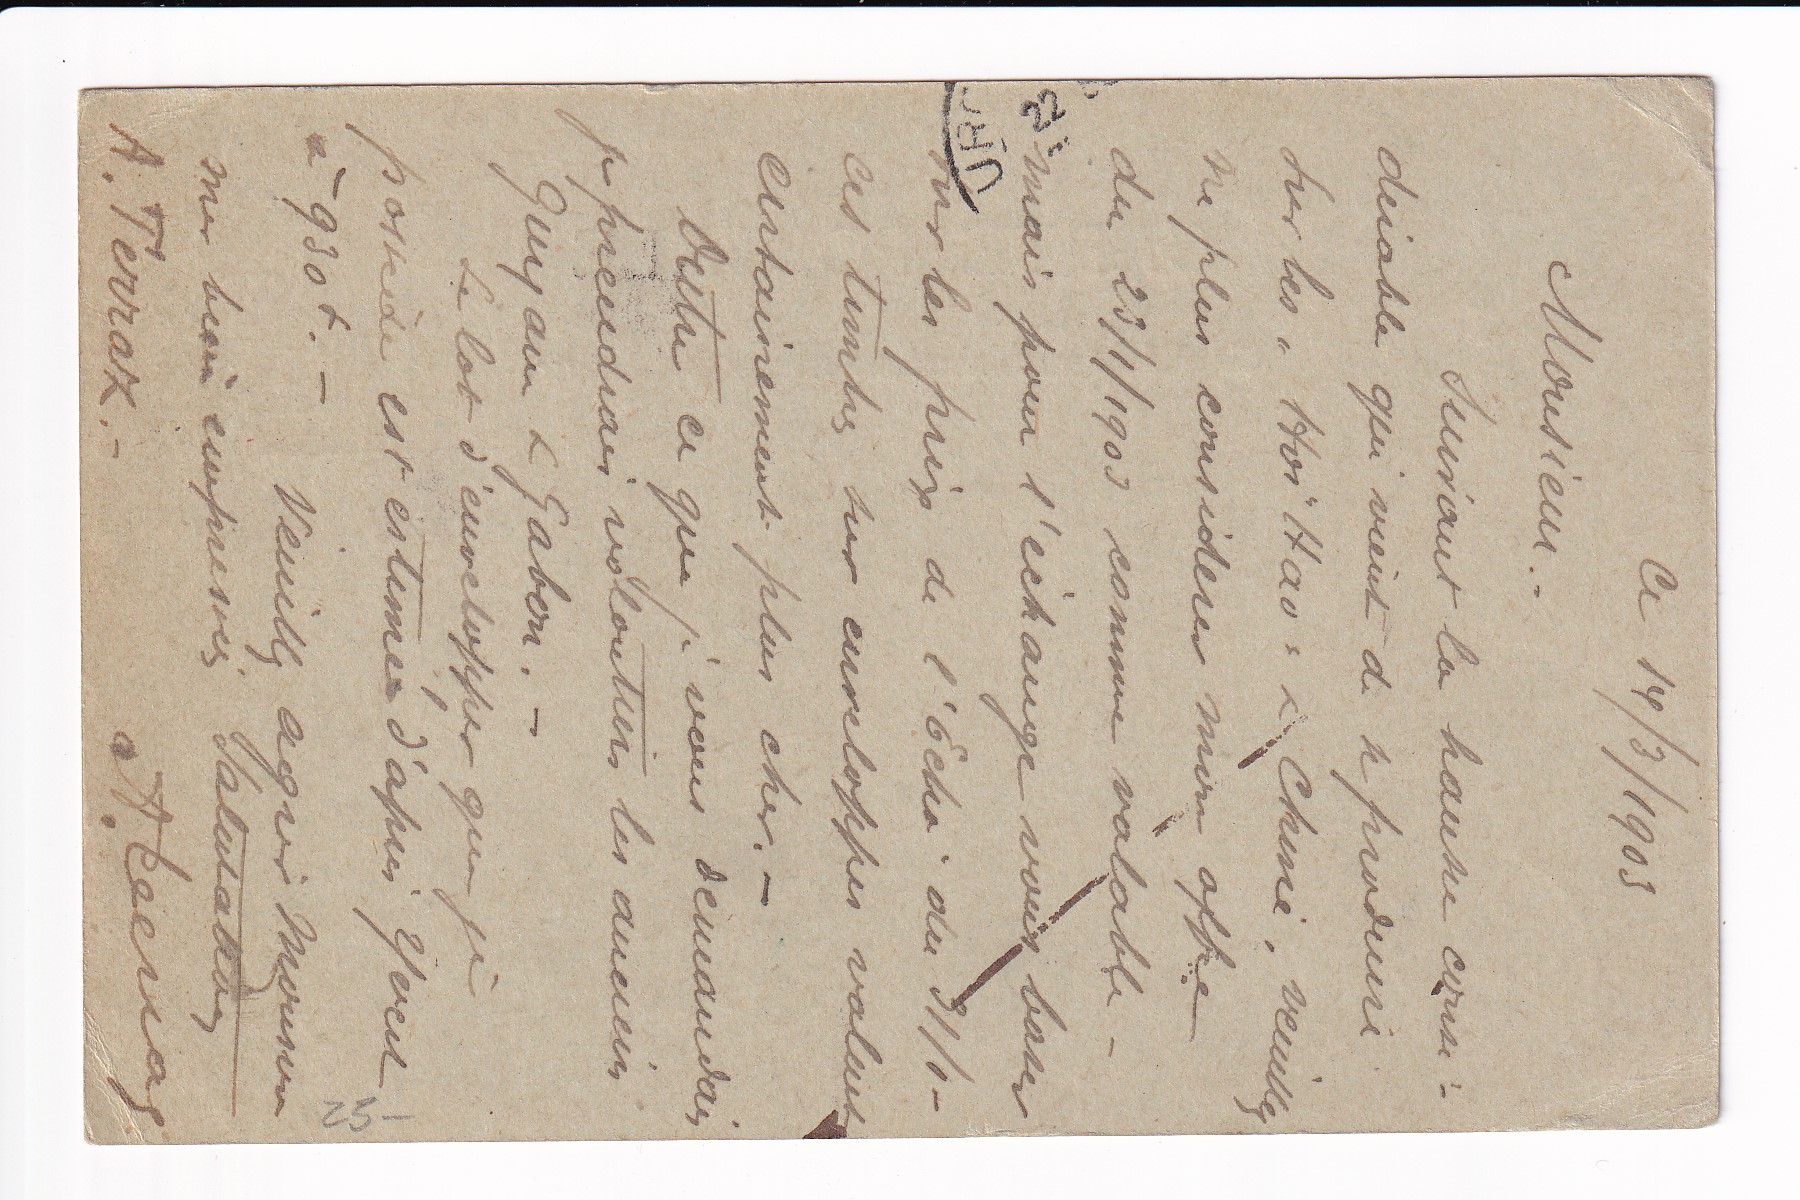 Ce 14/3/1903
Monsieur.-
Suivant la hausse consi-
diable qui vient de se produire
sur les "Hoï Hao" & Chine, veuillez
ne plus considerer mon offre
du 23/1/1903 comme valable -
mais pour l'échange vous baser
sur les prix de l'Echo du 31/1-
ces timbres sur enveloppes valent
certainement plus cher. -
Outre ce que je vous demandais
je prendrais volontiers les anciens
Guyane & Gabon. -
Le lot d'envelopper que je
possede est estimée d'après Yvert
à 930 f. -
Veuillez agreer Monsieur
mes bien empressées Salutations
A. Terraz. -
a
25-